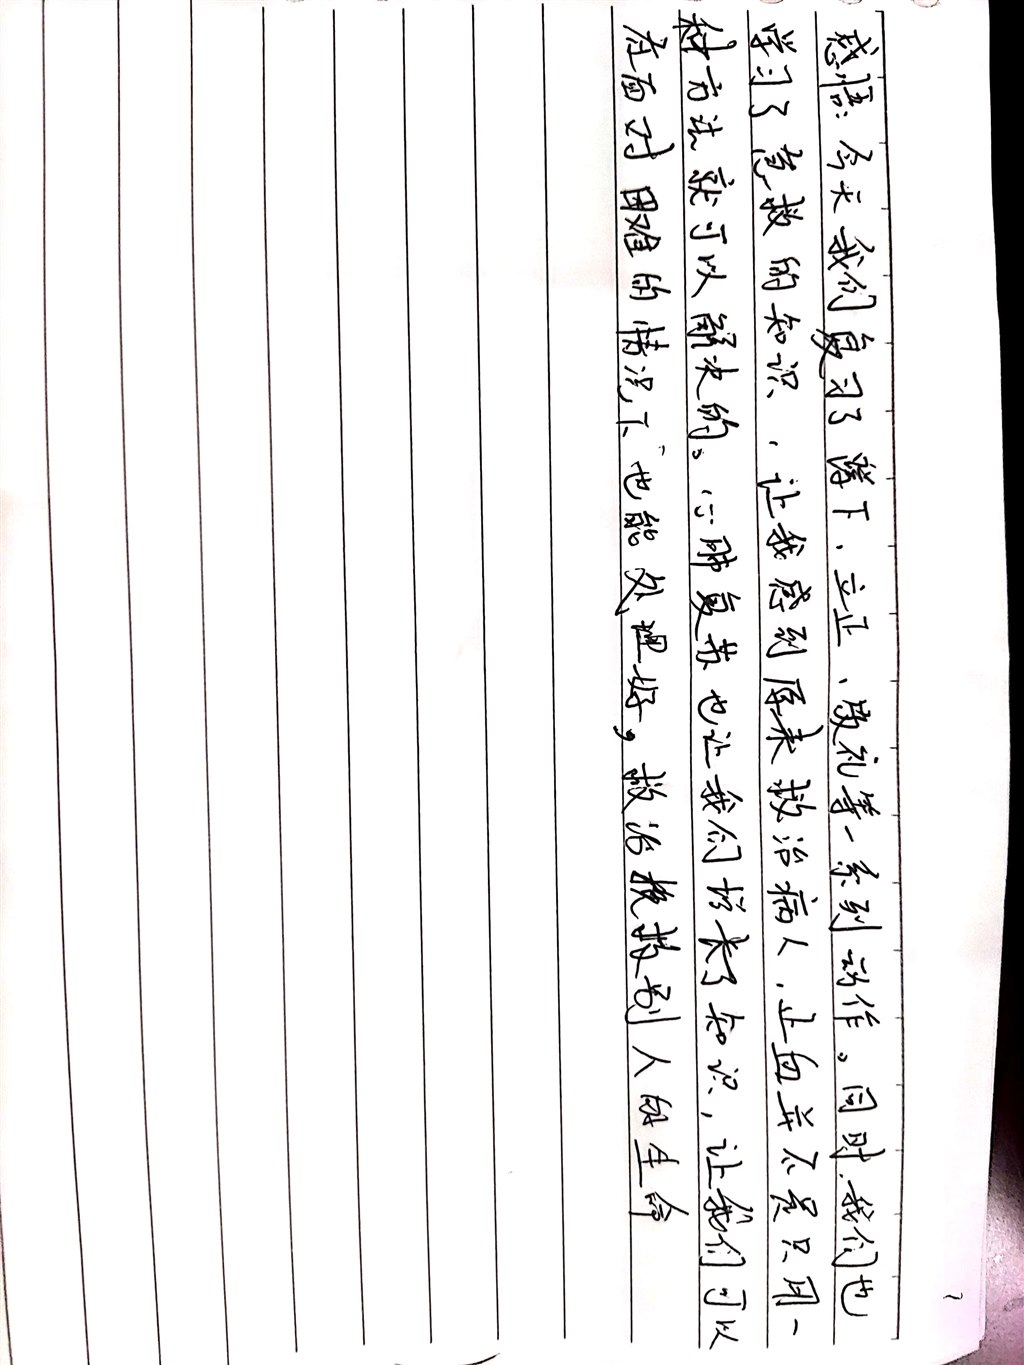 感悟:今天我们复习了蹲下、立正、敬礼等一系列动作。同时,我们也
学习了急救的知识,让我感到原来救治病人,止血并不是只用一
种方法就可以解决的。心肺复苏也让我们增长了知识,让我们可以
在面对困难的情况下,也能处理好,救治挽救别人的生命